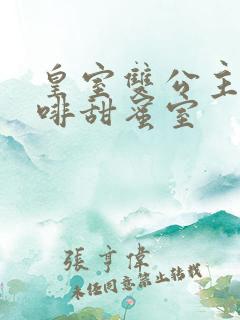 皇室雙公主
啡甜蜜室
張亨偉
未經同意禁止轉載